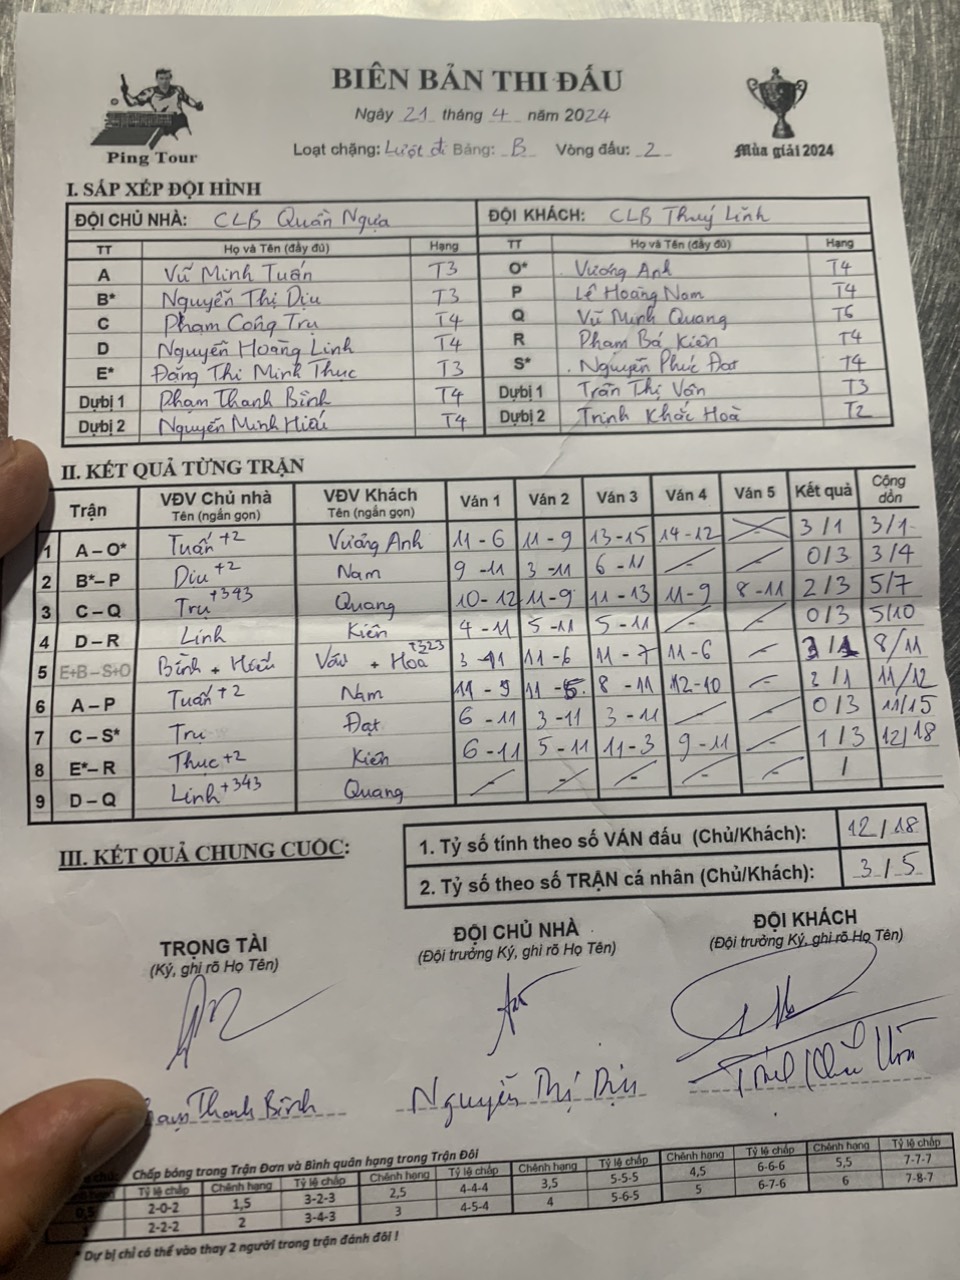 BIÊN BẢN THI ĐẤU
Ngày 21 tháng 4 năm 2024
Ping Tour
Loạt chặng: Lượt đi Bảng: B Vòng đấu: 2
Mùa giải 2024
I. SẮP XẾP ĐỘI HÌNH
ĐỘI CHỦ NHÀ: CLB Quần Ngựa ĐỘI KHÁCH: CLB Thuý Lĩnh
TT Họ và Tên (đầy đủ) Hạng TT Họ và Tên (đầy đủ) Hạng
A Vũ Minh Tuấn T3 O* Vương Anh T4
B* Nguyễn Thị Dịu T3 P Lê Hoàng Nam T4
C Phạm Công Trụ T4 Q Vũ Minh Quang T6
D Nguyễn Hoàng Linh T4 R Phạm Bá Kiên T4
E* Đặng Thi Minh Thục T3 S* Nguyễn Phúc Đạt T4
Dựbị 1 Phạm Thanh Bình T4 Dựbị 1 Trần Thị Vân T3
Dựbị 2 Nguyễn Minh Hiếu T4 Dựbị 2 Trịnh Khắc Hoà T2
II. KẾT QUẢ TỪNG TRẬN
Trận VĐV Chủ nhà Tên (ngắn gọn) VĐV Khách Tên (ngắn gọn) Ván 1 Ván 2 Ván 3 Ván 4 Ván 5 Kết quả Cộng dồn
1 A – O* Tuấn +2 Vương Anh 11 - 6 11 - 9 13 - 15 14 - 12 3 / 1 3/1
2 B*– P Dịu +2 Nam 9 - 11 3 - 11 6 - 11 - - 0/3 3/4
3 C – Q Trụ +343 Quang 10 - 12 11 - 9 11 - 13 11 - 9 8 - 11 2/3 5/7
4 D – R Linh Kiên 4 - 11 5 - 11 5 - 11 - - 0/3 5/10
5 E+B – S+O Bình + Hiếu Vân + Hoà +323 3 - 11 11 - 6 11 - 7 11 - 6 - 3/1 8/11
6 A – P Tuấn +2 Nam 11 - 9 11 - 5 8 - 11 12 - 10 - 11/12
7 C – S* Trụ Đạt 6 - 11 3 - 11 3 - 11 - - 0/3 11/15
8 E*– R Thục +2 Kiên 6 - 11 5 - 11 11 - 3 9 - 11 - 1/3 12/18
9 D – Q Linh +343 Quang - - - - - /
III. KẾT QUẢ CHUNG CUỘC:
1. Tỷ số tính theo số VÁN đấu (Chủ/Khách): 12/18
2. Tỷ số theo số TRẬN cá nhân (Chủ/Khách): 3/5
TRỌNG TÀI ĐỘI CHỦ NHÀ ĐỘI KHÁCH
(Ký, ghi rõ Họ Tên) (Đội trưởng Ký, ghi rõ Họ Tên) (Đội trưởng Ký, ghi rõ Họ Tên)
Thanh Bình Nguyễn Thị Dịu
Chấp bóng trong Trận Đơn và Bình quân hạng trong Trận Đôi
Tỷ lệ chấp Chênh hạng Tỷ lệ chấp Chênh hạng Tỷ lệ chấp Chênh hạng Tỷ lệ chấp Chênh hạng Tỷ lệ chấp Chênh hạng Tỷ lệ chấp
0,5 2-0-2 1,5 3-2-3 2,5 4-4-4 3,5 5-5-5 4,5 6-6-6 5,5 7-7-7
1 2-2-2 2 3-4-3 3 4-5-4 4 5-6-5 5 6-7-6 6 7-8-7
* Dự bị chỉ có thể vào thay 2 người trong trận đánh đôi !